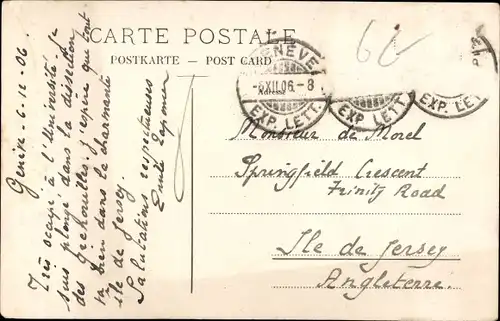 CARTE POSTALE
POSTKARTE — POST CARD
Adresse
GENÈVE
-6XII.06.-8
EXP. LETT.
EXP. LETT.
EXP. LETT.
Genève - 6.12.06.
Très occupé à l'Université, je
suis plongé dans la dissection
des grenouilles. J'espère que tout
va bien dans la charmante
île de Jersey.
Salutations respectueuses
Emile
Monsieur de Morel
Springfield Crescent
Trinity Road
Ile de Jersey
Angleterre.